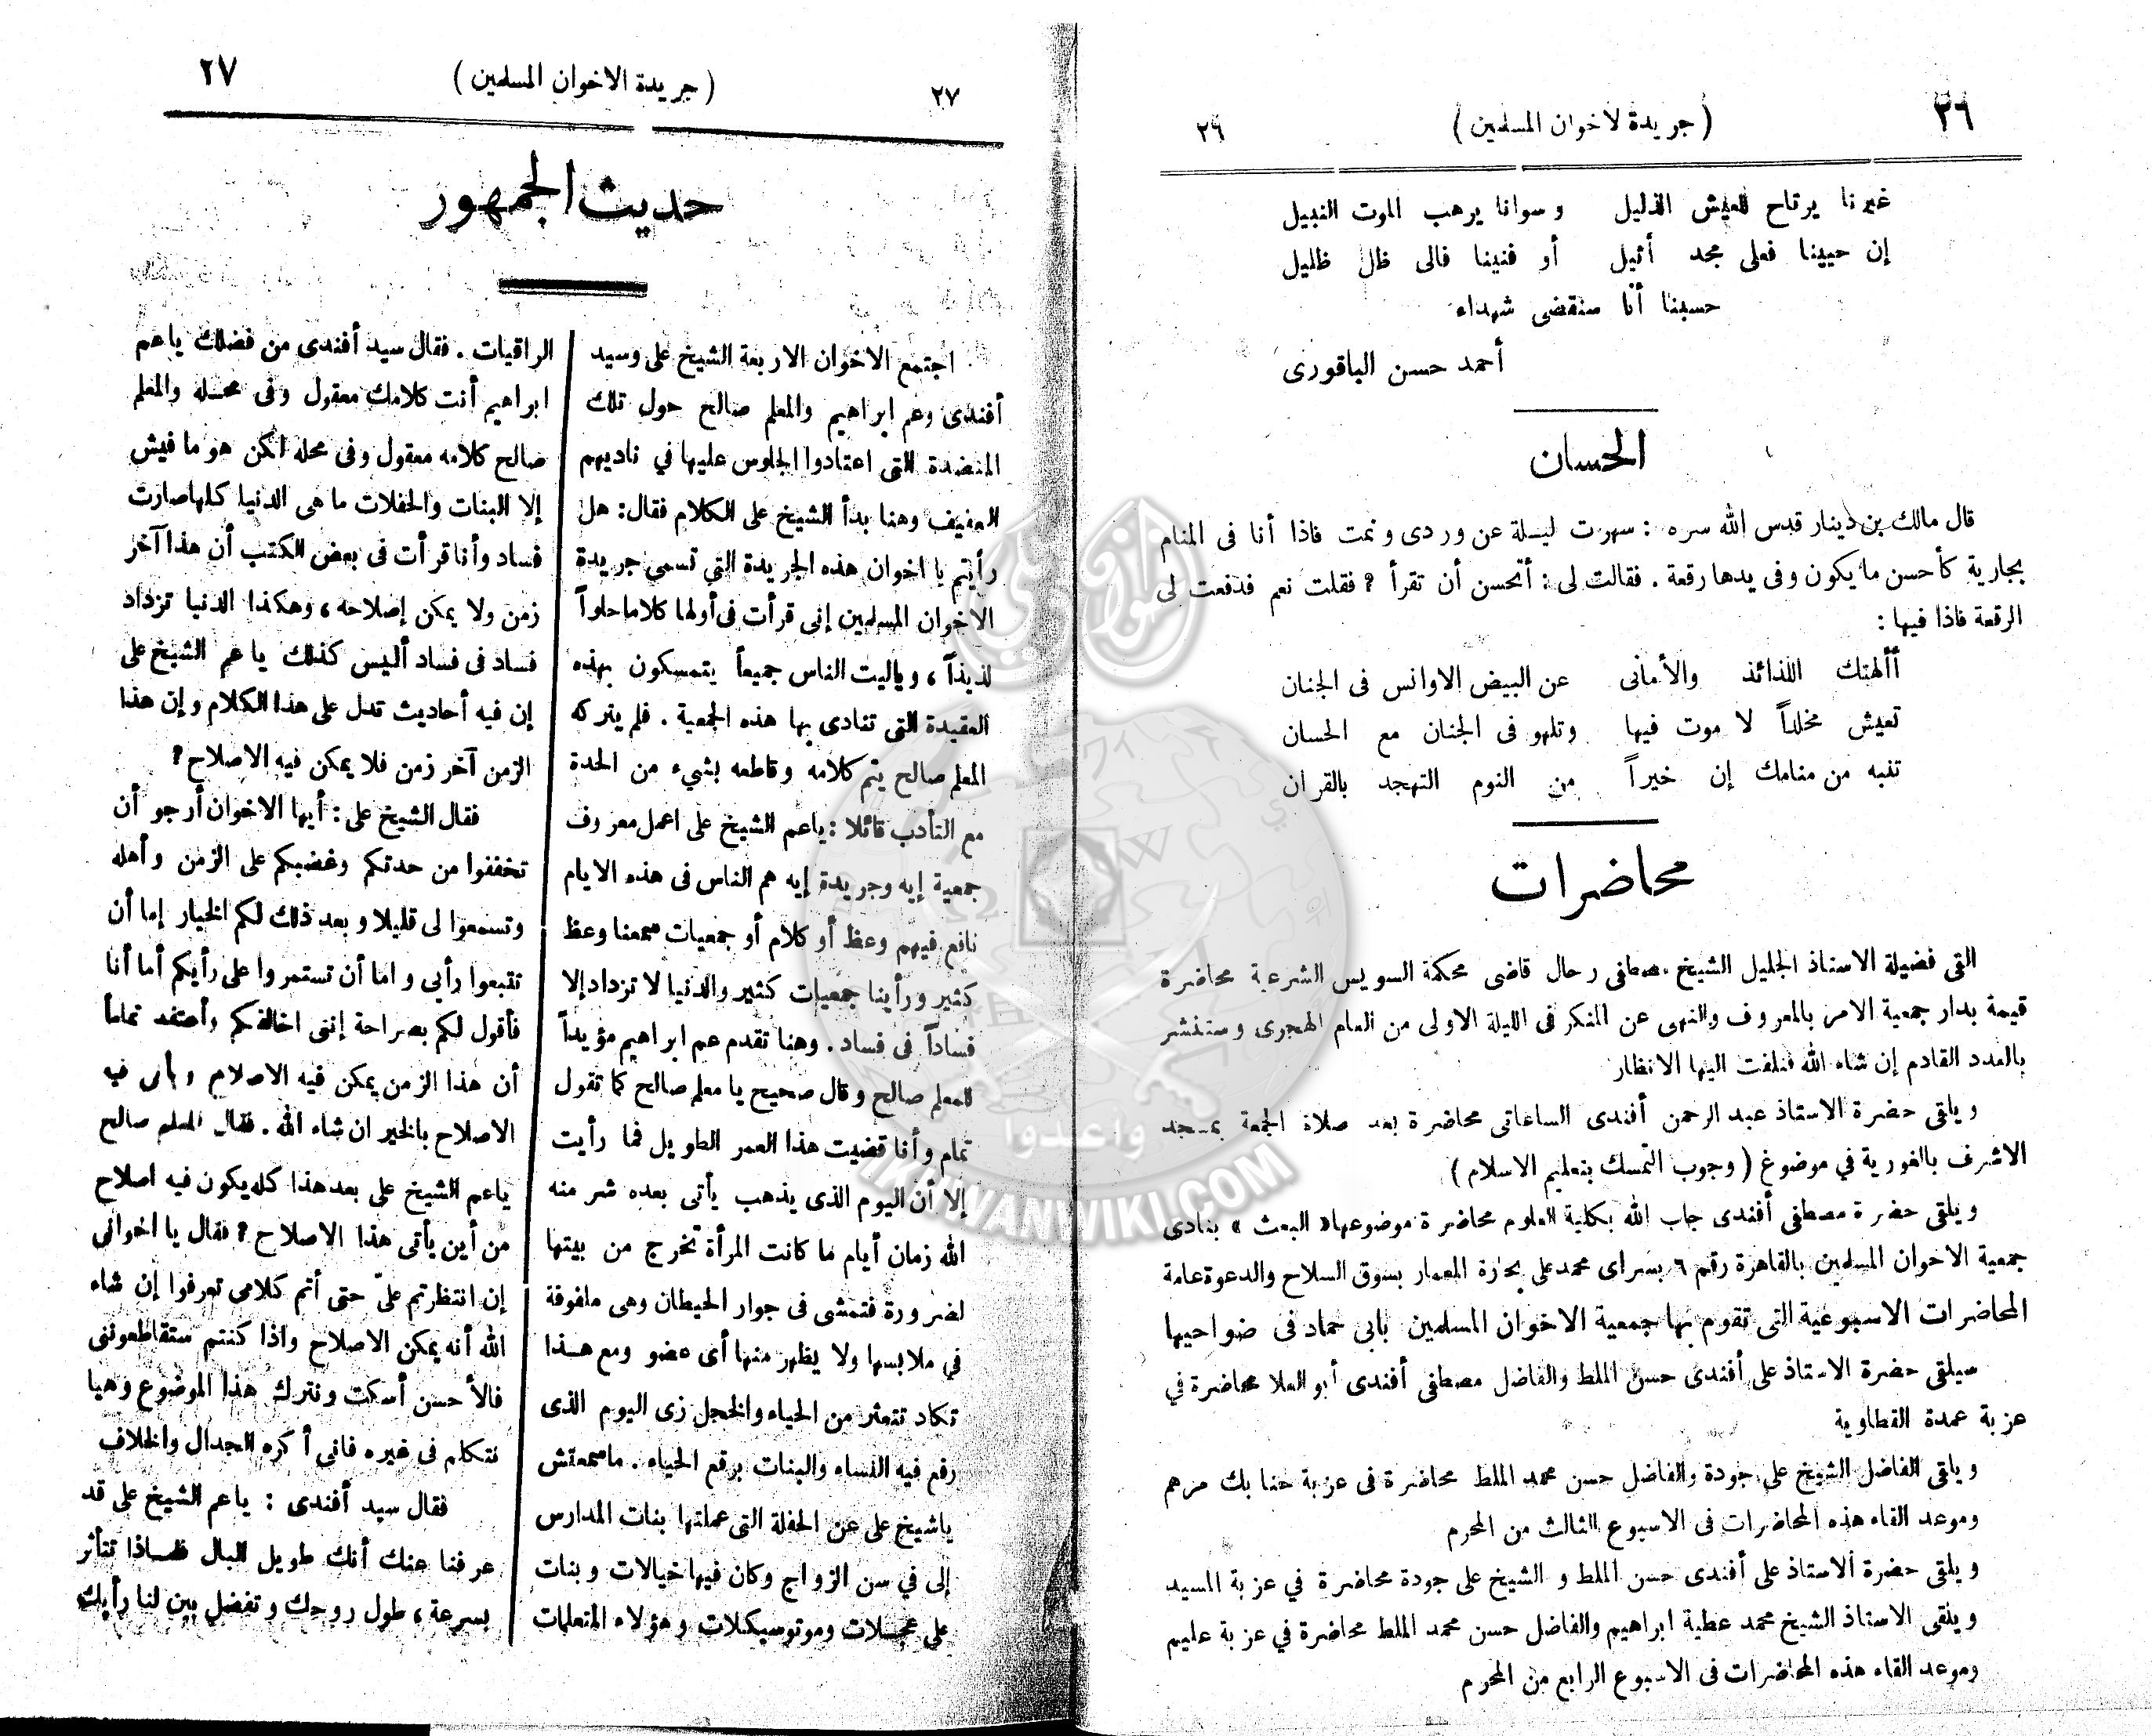 ٣٦
(جريدة لاخوان المسلمين)
٢٦
غيرنا يرتاح للعيش الذليل وسوانا يرهب الموت النبيل
إن حيينا فعلى مجد أثيل أو فنينا فالى ظل ظليل
حسبنا أنا سنقضى شهداء
أحمد حسن الباقورى
الحسان
قال مالك بن دينار قدس الله سره : سهرت ليلة عن وردى ونمت فاذا أنا فى المنام
بجارية كأحسن ما يكون وفى يدها رقعة . فقالت لى : أتحسن أن تقرأ ؟ فقلت نعم فدفعت لى
الرقعة فاذا فيها :
أألهتك اللذائذ والأمانى عن البيض الاوانس فى الجنان
تعيش مخلداً لا موت فيها وتلهو فى الجنان مع الحسان
تنبه من منامك إن خيراً من النوم التهجد بالقران
محاضرات
القى فضيلة الاستاذ الجليل الشيخ مصطفى رحال قاضى محكمة السويس الشرعية محاضرة
قيمة بدار جمعية الامر بالمعروف والنهى عن المنكر فى الليلة الاولى من العام الهجرى وستنشر
بالعدد القادم إن شاء الله فنلفت اليها الانظار
ويلقى حضرة الاستاذ عبد الرحمن أفندى الساعاتى محاضرة بعد صلاة الجمعة بمسجد
الاشرف بالغورية في موضوغ ( وجوب التمسك بتعليم الاسلام )
ويلقى حضرة مصطفى أفندى جاب الله بكلية العلوم محاضرة موضوعها « البعث » بنادى
جمعية الاخوان المسلمين بالقاهرة رقم ٦ بسراى محمد على بحارة المعمار بسوق السلاح والدعوة عامة
المحاضرات الاسبوعية التى تقوم بها جمعية الاخوان المسلمين بابى حماد فى ضواحيها
سيلقى حضرة الاستاذ على أفندى حسن الملط والفاضل مصطفى أفندى أبو العلا محاضرة في
عزبة عمدة القطاوية
ويلقى الفاضل الشيخ على جودة والفاضل حسن محمد الملط محاضرة فى عزبة حنا بك مرهم
وموعد القاء هذه المحاضرات فى الاسبوع الثالث من المحرم
ويلقى حضرة الاستاذ على أفندى حسن الملط و الشيخ على جودة محاضرة في عزبة السيد
ويلقى الاستاذ الشيخ محمد عطية ابراهيم والفاضل حسن محمد الملط محاضرة في عزبة عليم
وموعد القاء هذه المحاضرات فى الاسبوع الرابع من المحرم
٢٧
(جريدة الاخوان المسلمين)
٢٧
حديث الجمهور
اجتمع الاخوان الاربعة الشيخ على وسيد
أفندى وعم ابراهيم والمعلم صالح حول تلك
المنضدة التى اعتادوا الجلوس عليها في ناديهم
العفيف وهنا بدأ الشيخ على الكلام فقال : هل
رأيتم يا اخوان هذه الجريدة التي تسمي جريدة
الاخوان المسلمين إنى قرأت فى أولها كلاما حلواً
لذيذاً ، وياليت الناس جميعاً يتمسكون بهذه
العقيدة التى تنادى بها هذه الجمعية . فلم يتركه
المعلم صالح يتم كلامه وقاطعه بشيء من الحدة
مع التأدب قائلا : ياعم الشيخ على اعمل معروف
جمعية إيه وجريدة إيه هم الناس فى هذه الايام
نافع فيهم وعظ أو كلام أو جمعيات سمعنا وعظ
كثير ورأينا جمعيات كثير والدنيا لا تزداد إلا
فساداً فى فساد . وهنا تقدم عم ابراهيم مؤيداً
للمعلم صالح وقال صحيح يا معلم صالح كما تقول
تمام وأنا قضيت هذا العمر الطويل فما رأيت
إلا أن اليوم الذى يذهب يأتى بعده شر منه
الله زمان أيام ما كانت المرأة تخرج من بيتها
لضرورة فتمشى فى جوار الحيطان وهى ملفوفة
في ملابسها ولا يظهر منها أى عضو ومع هذا
تكاد تتعثر من الحياء والخجل زى اليوم الذى
رفع فيه النساء والبنات برقع الحياء . ماسمعتش
ياشيخ على عن الحفلة التى عملتها بنات المدارس
إلى في سن الزواج وكان فيها خيالات وبنات
على عجلات وموتوسيكلات وهؤلاء المتعلمات
الراقيات . فقال سيد أفندى من فضلك ياعم
ابراهيم أنت كلامك معقول وفى محله والمعلم
صالح كلامه معقول وفى محله لكن هو ما فيش
إلا البنات والحفلات ما هى الدنيا كلها صارت
فساد وأنا قرأت فى بعض الكتب أن هذا آخر
زمن ولا يمكن إصلاحه ، وهكذا الدنيا تزداد
فساد فى فساد أليس كذلك ياعم الشيخ على
إن فيه أحاديث تدل على هذا الكلام وإن هذا
الزمن آخر زمن فلا يمكن فيه الاصلاح ؟
فقال الشيخ على : أيها الاخوان أرجو أن
تخففوا من حدتكم وغضبكم على الزمن وأهله
وتسمعوا لى قليلا وبعد ذلك لكم الخيار إما أن
تتبعوا رأيى واما أن تستمروا على رأيكم أما أنا
فأقول لكم بصراحة إننى اخالفكم وأعتقد تماما
أن هذا الزمن يمكن فيه الاصلاح ويأتى فيه
الاصلاح بالخير ان شاء الله . فقال المعلم صالح
ياعم الشيخ على بعد هذا كله يكون فيه اصلاح
من أين يأتى هذا الاصلاح ؟ فقال يا اخوانى
إن انتظرتم علىّ حتى أتم كلامى تعرفوا إن شاء
الله أنه يمكن الاصلاح واذا كنتم ستقاطعوننى
فالأحسن أسكت ونترك هذا الموضوع وهيا
نتكلم فى غيره فانى أكره الجدال والخلاف
فقال سيد أفندى : ياعم الشيخ على قد
عرفنا عنك أنك طويل البال فلماذا تتأثر
بسرعة ، طول روحك وتفضل بين لنا رأيك
وأعدوا
IKHWANWIKI.COM